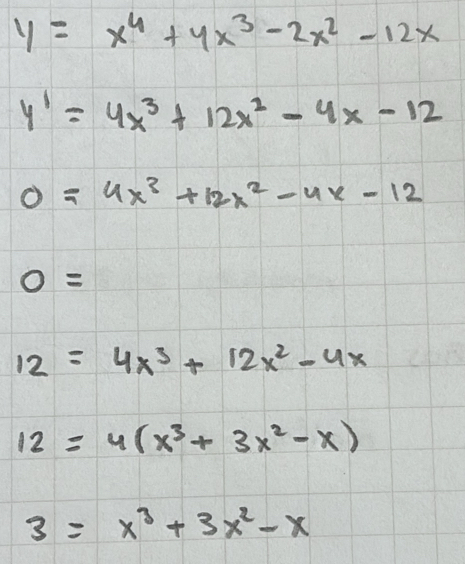 y = x⁴ + 4x³ - 2x² - 12x
y' = 4x³ + 12x² - 4x - 12
0 = 4x³ + 12x² - 4x - 12
0 =
12 = 4x³ + 12x² - 4x
12 = 4(x³ + 3x² - x)
3 = x³ + 3x² - x